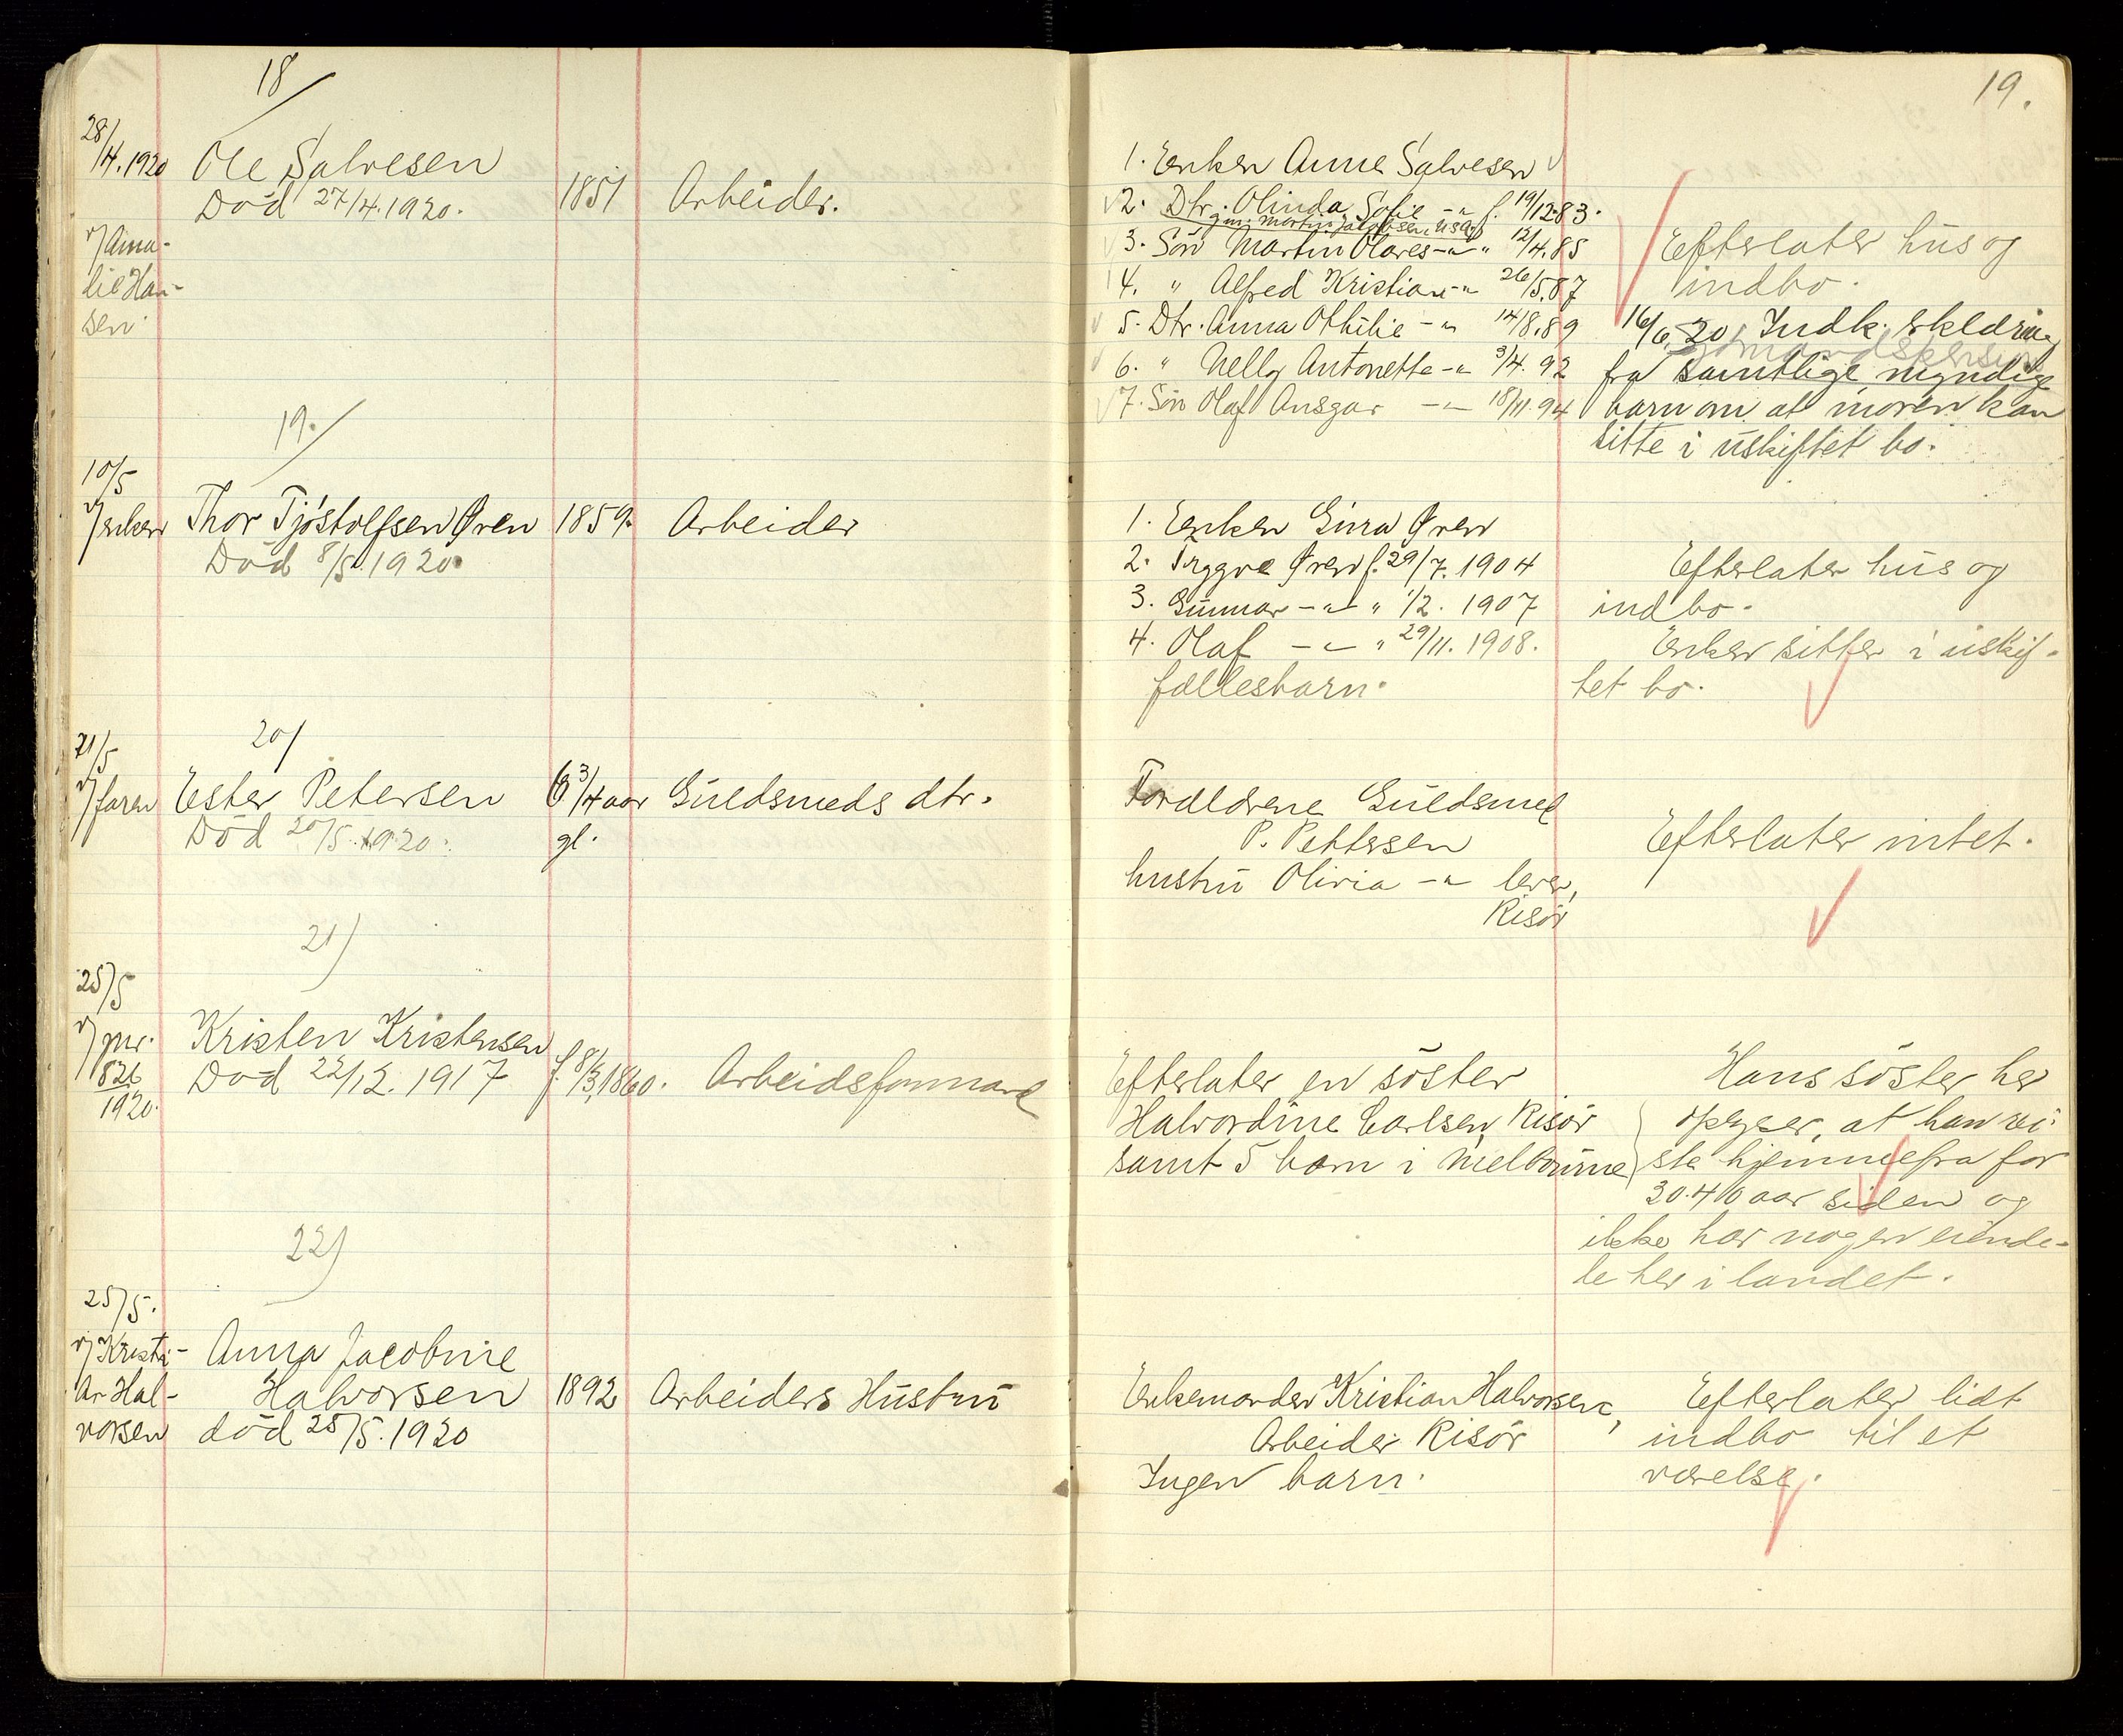 19.
18/
28/4.1920
Ole Salvesen
Död 27/4.1920.
1851
Arbeider.
v/Ama-
lie Han-
sen
1. Enken Anne Salvesen
2. Dtr. Olinda Sofie -"- f. 19/12.83.
gm. Martin Jakobsen, USA
3. Sön Martin Olaves -"- " 12/4.85
4. " Alfred Kristian -"- 26/5.87
5. Dtr. Anna Othilie -"- 14/8.89
6. " Nelly Antonette -"- 3/4.92
7. Sön Olaf Ansgar -"- 18/11.94
Efterlater hus og
indbo.
16/6.20. Indk. erklæring
fra samtlige myndige
barn om at moren kan
sitte i uskiftet bo.
19./
10/5
v/enken
Thor Tjöstolfsen Øren
Död 8/5.1920.
1859.
Arbeider
1. Enken Gina Øren
2. Trygve Øren f. 29/7. 1904
3. Gunnar -"- " 1/2. 1907
4. Olaf -"- " 29/11. 1908.
fællesbarn.
Efterlater hus og
indbo.
Enken sitter i uskif-
tet bo.
20/
21/5
v/faren
Ester Petersen
Död 20/5.1920.
6 3/4 aar
gl.
Guldsmeds dtr.
Forældrene Guldsmed
P. Pettersen
hustru Olivia -"- lever,
Risör
Efterlater intet.
21)
25/5
v/ pnr.
826
1920.
Kristen Kristensen
Död 22/12. 1917
f. 8/3.1860.
Arbeidsformand
Efterlater en söster
Halvordine Carlsen, Risör
samt 5 barn i Melbourne
Hans söster her
opgyer, at han rei-
ste hjemmefra for
30-40 aar siden og
ikke har nogen eiende-
le her i landet.
22)
25/5.
v/Kristi-
an Hal-
vorsen
Anna Jacobine
Halvorsen
död 25/5.1920
1892
Arbeiders Hustru
Enkemanden Kristian Halvorsen,
Arbeider Risör
Ingen barn.
Efterlater lidt
indbo til et
værelse.